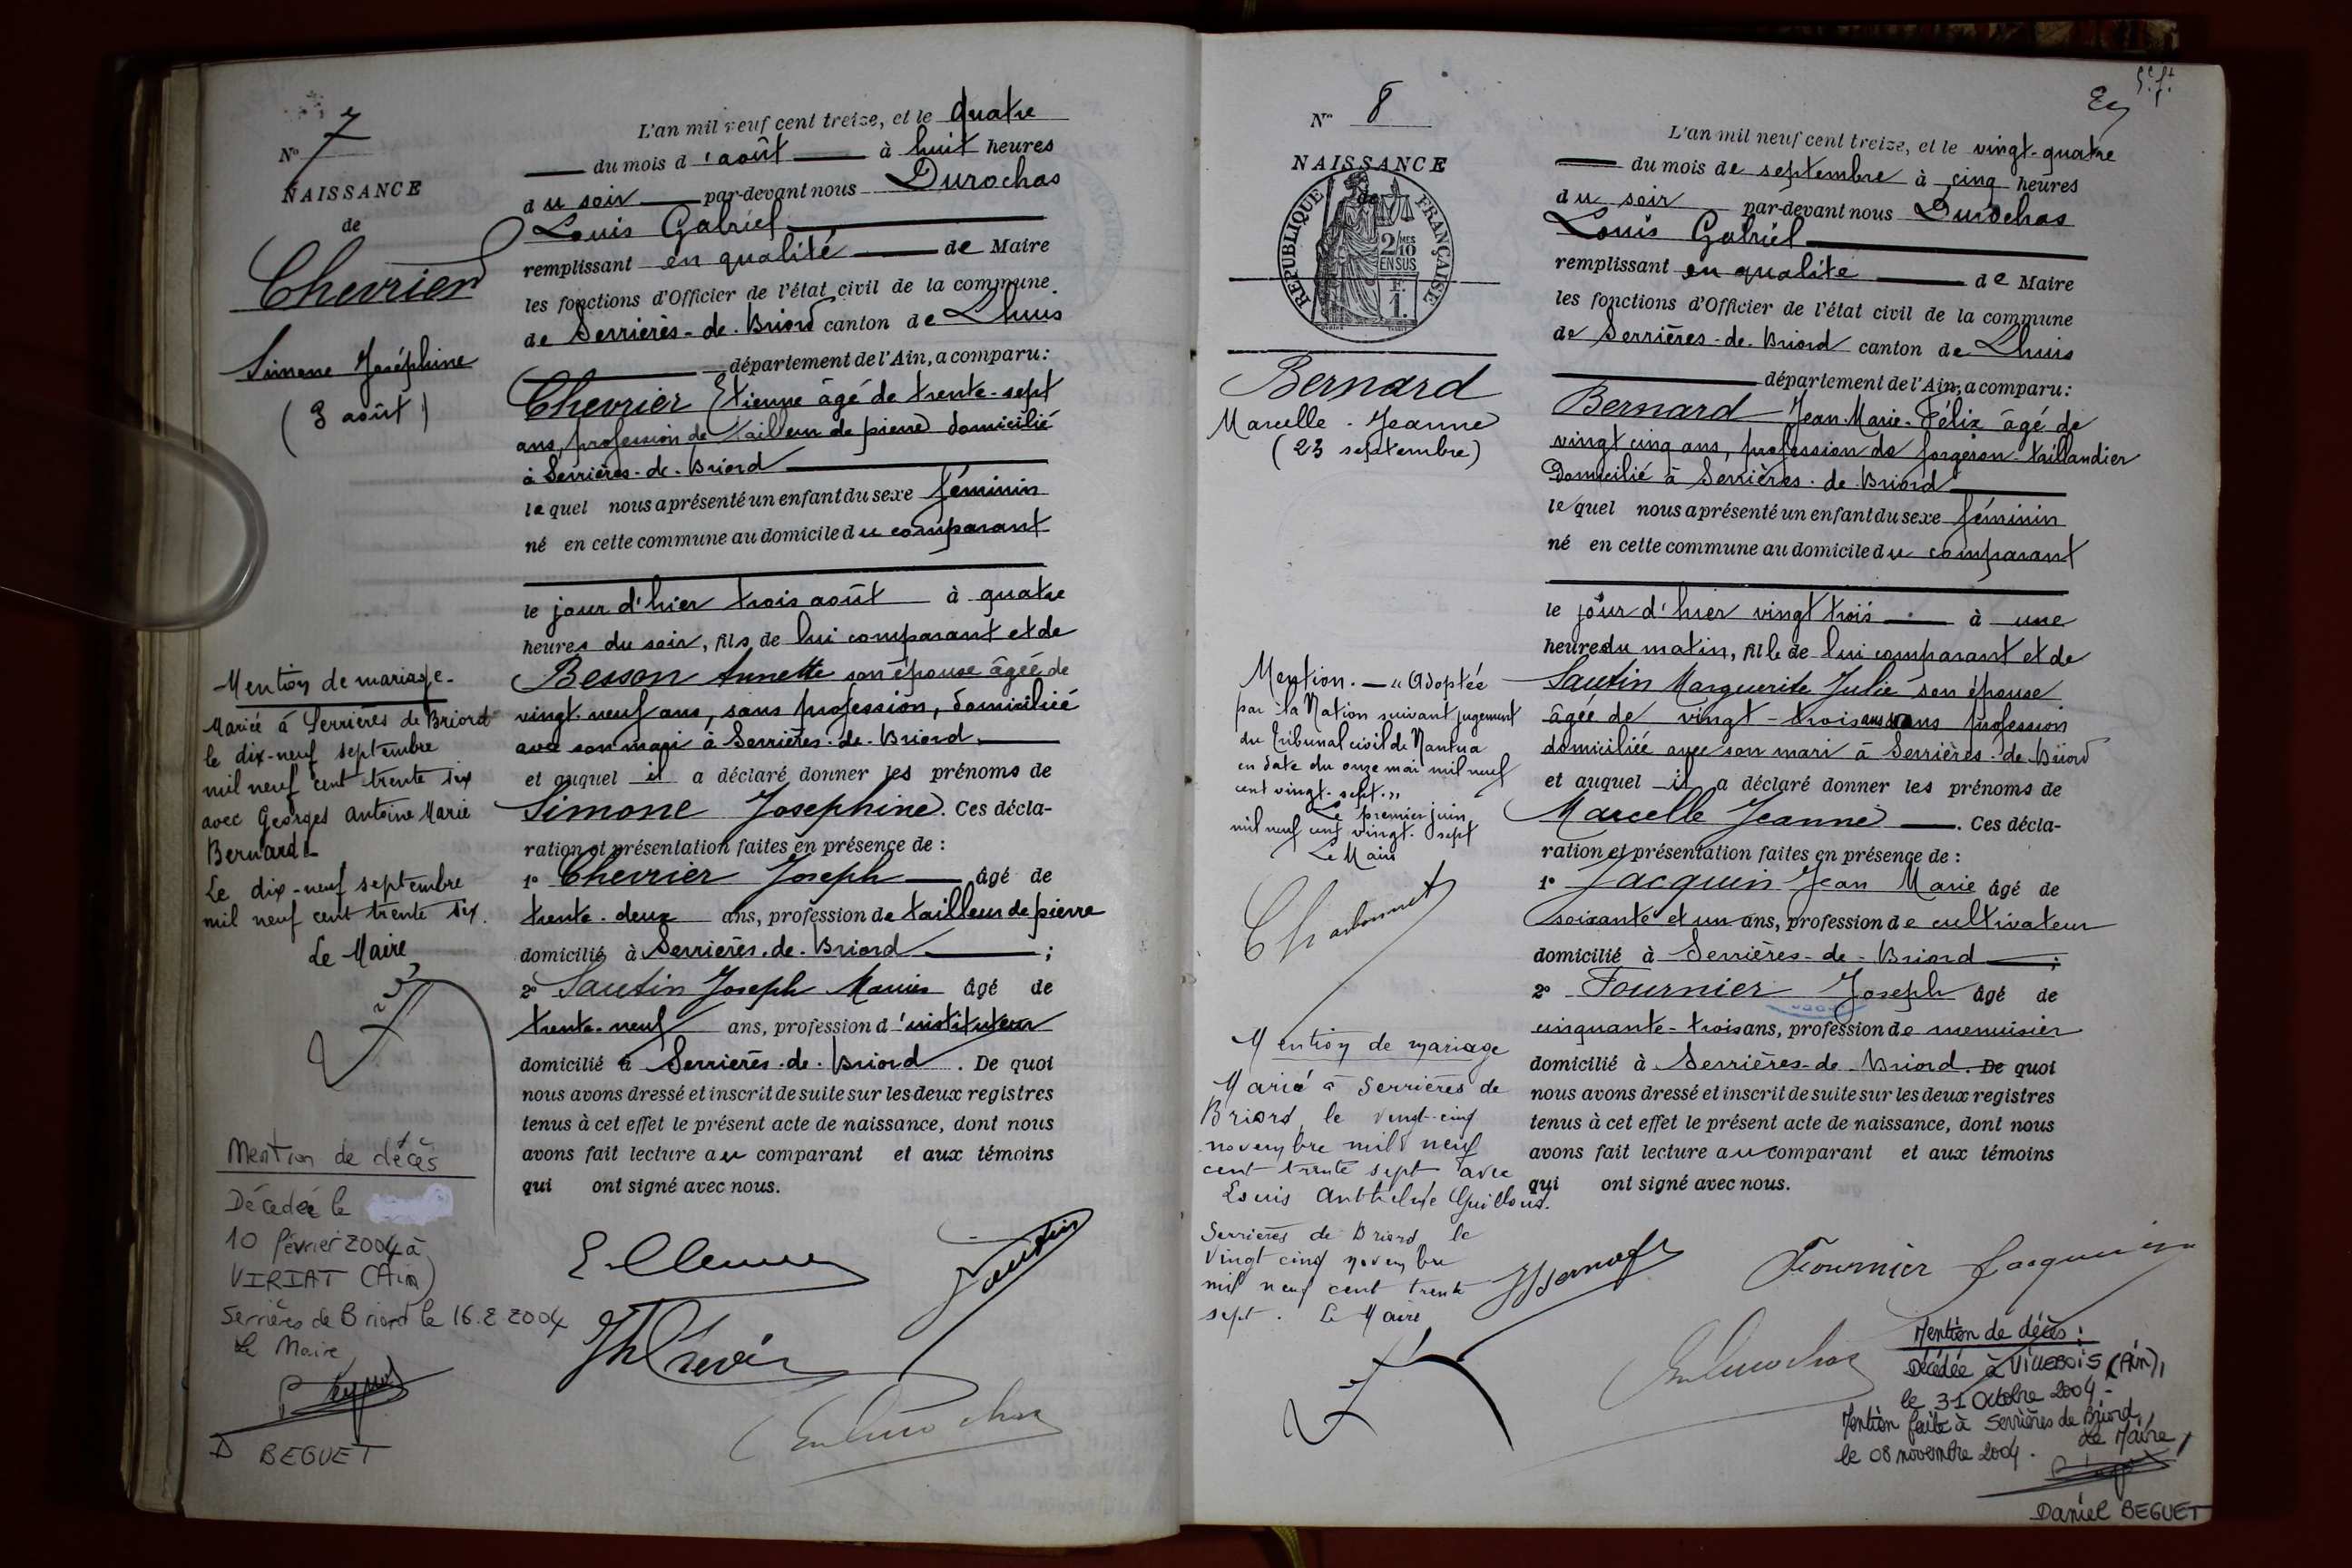 N° 7
NAISSANCE
de
Chevrier
Simone Joséphine
(3 août)
Mention de mariage.
Mariée à Serrières de Briord
le dix-neuf septembre
mil neuf cent trente six
avec Georges Antoine Marie
Bernard.
Le dix-neuf septembre
mil neuf cent trente six.
Le Maire
Mention de décès
Décédée le
10 février 2004 à
VIRIAT (Ain)
Serrières de Briord le 16.2.2004
Le Maire
D BEGUET
L'an mil neuf cent treize, et le quatre
du mois d'août à huit heures
du soir par-devant nous Durochas
Louis Gabriel
remplissant en qualité de Maire
les fonctions d'Officier de l'état civil de la commune
de Serrières-de-Briord canton de Lhuis
département de l'Ain, a comparu:
Chevrier Etienne âgé de trente-sept
ans, profession de tailleur de pierre domicilié
à Serrières-de-Briord
lequel nous a présenté un enfant du sexe féminin
né en cette commune au domicile du comparant
le jour d'hier trois août à quatre
heures du soir, fils de lui comparant et de
Besson Annette son épouse âgée de
vingt-neuf ans, sans profession, domiciliée
avec son mari à Serrières-de-Briord.
et auquel il a déclaré donner les prénoms de
Simone Josephine. Ces décla-
ration et présentation faites en présence de :
1° Chevrier Joseph âgé de
trente-deux ans, profession de tailleur de pierre
domicilié à Serrières-de-Briord ;
2° Sautin Joseph Marius âgé de
trente-neuf ans, profession d'instituteur
domicilié à Serrières-de-Briord. De quoi
nous avons dressé et inscrit de suite sur les deux registres
tenus à cet effet le présent acte de naissance, dont nous
avons fait lecture au comparant et aux témoins
qui ont signé avec nous.
Sautin
N° 8
NAISSANCE
de
RÉPUBLIQUE FRANÇAISE
2/10MES
EN SUS
F.
1.
Bernard
Marcelle-Jeanne
(23 septembre)
Mention. — "Adoptée
par la Nation suivant jugement
du Tribunal civil de Nantua
en date du onze mai mil neuf
cent vingt-sept."
Le premier juin
mil neuf cent vingt-sept
Le Maire
Mention de mariage
Marié à Serrières de
Briord le vingt-cinq
novembre mil neuf
cent trente sept avec
Louis Anthelme Guilloud.
Serrières de Briord le
vingt cinq novembre
mil neuf cent trente
sept. Le Maire
L'an mil neuf cent treize, et le vingt-quatre
du mois de septembre à cinq heures
du soir par-devant nous Durochas
Louis Gabriel
remplissant en qualité de Maire
les fonctions d'Officier de l'état civil de la commune
de Serrières-de-Briord canton de Lhuis
département de l'Ain, a comparu:
Bernard Jean-Marie-Félix âgé de
vingt cinq ans, profession de forgeron-taillandier
Domicilié à Serrières-de-Briord
lequel nous a présenté un enfant du sexe féminin
né en cette commune au domicile du comparant
le jour d'hier vingt trois à une
heure du matin, fille de lui comparant et de
Sautin Marguerite Julie son épouse
âgée de vingt-trois ans sans profession
domiciliée avec son mari à Serrières-de-Briord
et auquel il a déclaré donner les prénoms de
Marcelle Jeanne. Ces décla-
ration et présentation faites en présence de :
1° Jacquin Jean Marie âgé de
soixante et un ans, profession de cultivateur
domicilié à Serrières-de-Briord ;
2° Fournier Joseph âgé de
cinquante-trois ans, profession de menuisier
domicilié à Serrières-de-Briord. De quoi
nous avons dressé et inscrit de suite sur les deux registres
tenus à cet effet le présent acte de naissance, dont nous
avons fait lecture au comparant et aux témoins
qui ont signé avec nous.
Fournier
Mention de décès :
Décédée à VILLEBOIS (Ain),
le 31 Octobre 2004 -
Mention faite à Serrières de Briord,
le 08 novembre 2004. Le Maire,
Daniel BEGUET